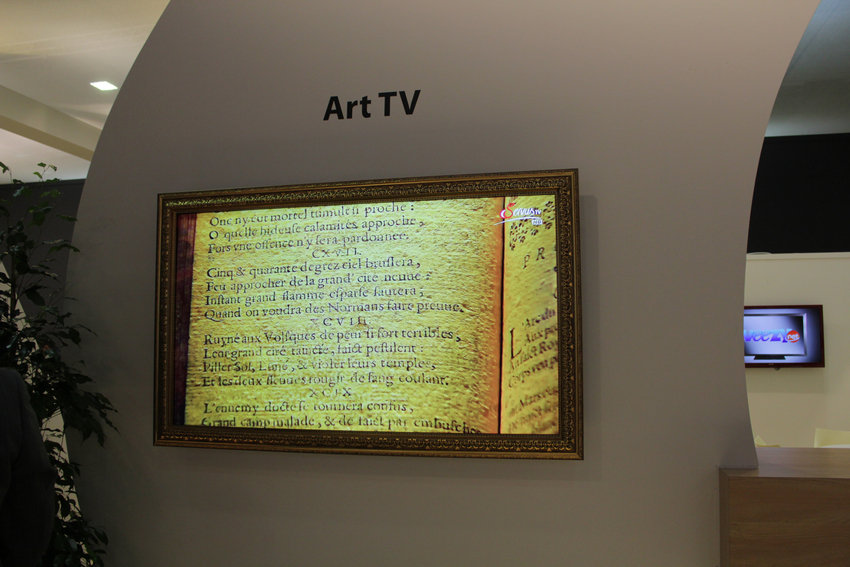 Art TV
One ny eut mortel tumulte si proche :
O qu'elle hideuse calamités approche,
Fors vne offence n'y sera pardonnée.
XCVII.
Cinq & quarante degrez ciel bruslera,
Feu approcher de la grand' cité neuue :
Instant grand flamme esparse sautera,
Quand on voudra des Normans faire preuue.
XCVIII.
Ruyné aux Volsques de peur si fort terribles,
Leur grand cité tainéte, faict pestilent :
Piller Sol, Lune, & violer leurs temples,
Et les deux fleuues rougir de sang coulant.
XCIX
L'ennemy docte se tournera confus,
Grand camp malade, & de faict par embusches
P R
L